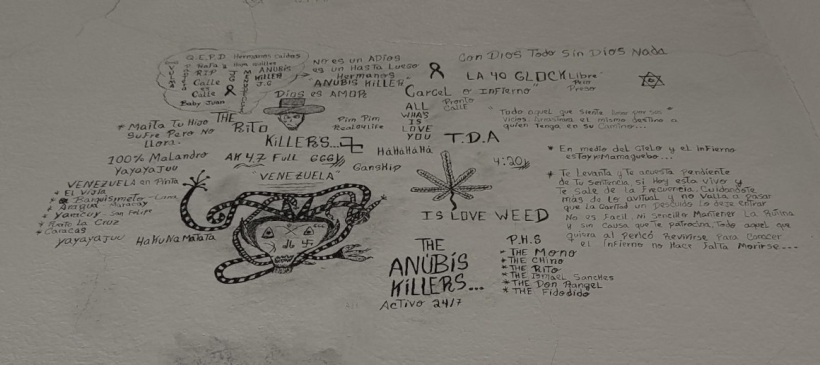 Q.E.P.D Hermanos caidos
RIP
Calle
en
Calle
Baby Juan
ANUBIS
KILLER
J.G
NO es un ADios
es un HASTA Luego
Hermanos
"ANUBIS KILLER"
Dios es AMOR
Con DIOS Todo Sin DIOS NAda
LA 40 GLOCK Libre
Pero
Preso
Carcel o INfierno"
Pronto
CAllE
ALL
WHA'S
IS
LOVE
YOU
"Todo aquel que siente por sus"
vicios el mismo destino a
quien Tenga en su Camino...
* Maita Tu Hijo
Sufre Pero No
Llora.
THE
RITO
KILLERS...
Pim Pim
HAHAHAHA
GansHip
T.D.A
4:20
100% MaLandro
YAyAyAJUU
AK 47 Full GGGY
"VENEZUELA"
VENEZUELA en Pinta
* EL VIGIA
* BArquisimeto - LARA
* ARAgua MARACAY
* YARACUY San Felipe
* Puerto La Cruz
* CARACAS
YAyAyAJUU HaKuNa MATATA
IS LOVE WEED
THE
ANUBIS
KILLERS...
ActIVO 24/7
P.H.S
* THE Mono
* THE CHINO
* THE RITO
* THE ISMAEL SANCHES
* THE Don RANGEL
* THE Fidodido
* En medio del Cielo y el INfierno
estoy
* Te Levanta y Te acuesta pendiente
de Tu Sentencia, si Hoy esta vivo y
Te Sale de la Frecuencia, Cuidandote
mas de lo avitual y no Valla a pasar
que la Cantud un Descuido Lo deje entrar
No es Facil, Ni Sencillo MANTENER La Rutina
y sin Causa que Te patrocina, Todo aquel que
quiera al Revivirse Para Conocer
el INfierno no Hace FALTA Morirse...